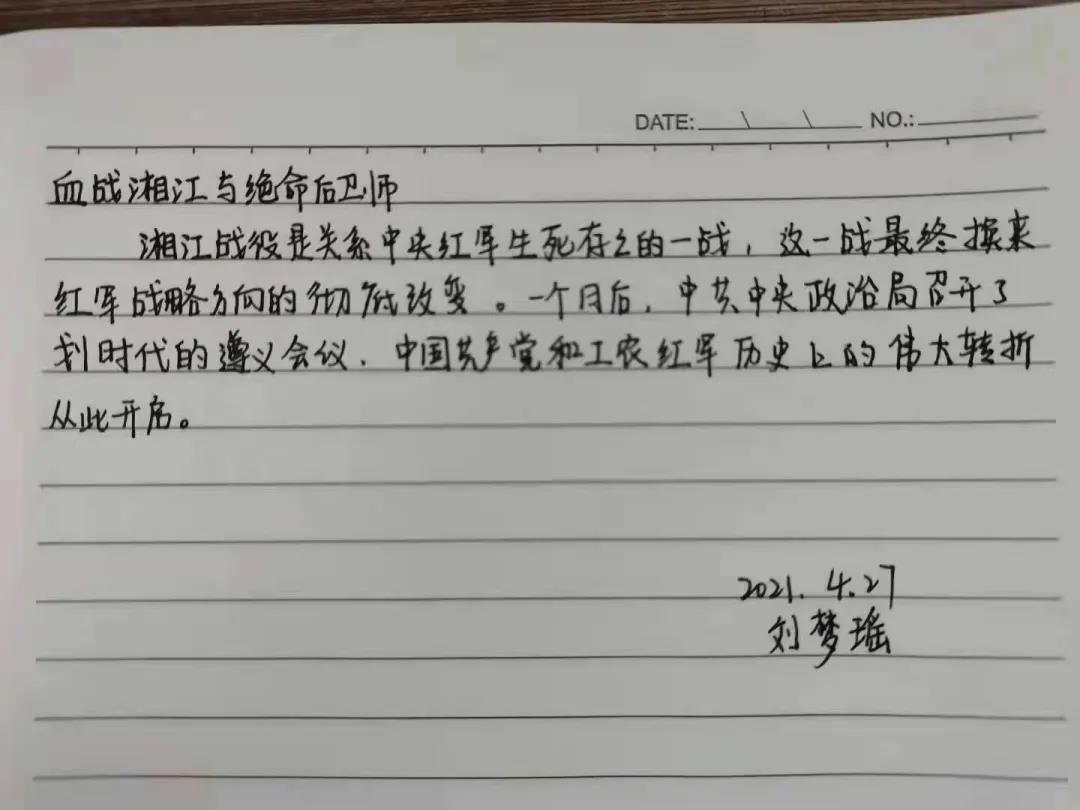 DATE: \ \ NO.:
血战湘江与绝命后卫师
湘江战役是关系中央红军生死存亡的一战，这一战最终换来
红军战略方向的彻底改变。一个月后，中共中央政治局召开了
划时代的遵义会议，中国共产党和工农红军历史上的伟大转折
从此开启。
2021.4.27
刘梦瑶